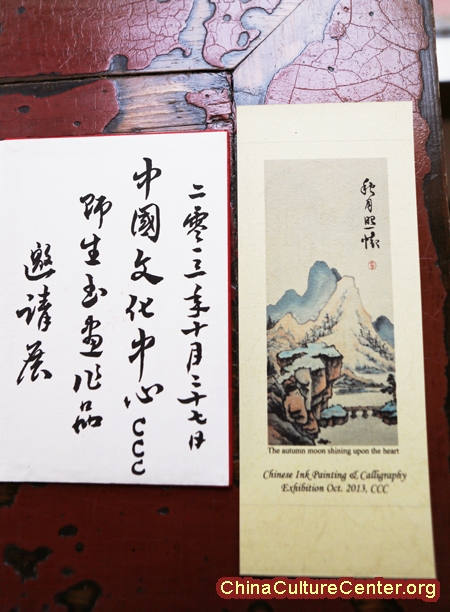 二零一三年十月二十七日
中國文化中心CCC
師生書畫作品
邀請展
秋月照懷
The autumn moon shining upon the heart
Chinese Ink Painting & Calligraphy
Exhibition Oct. 2013, CCC
ChinaCultureCenter.org